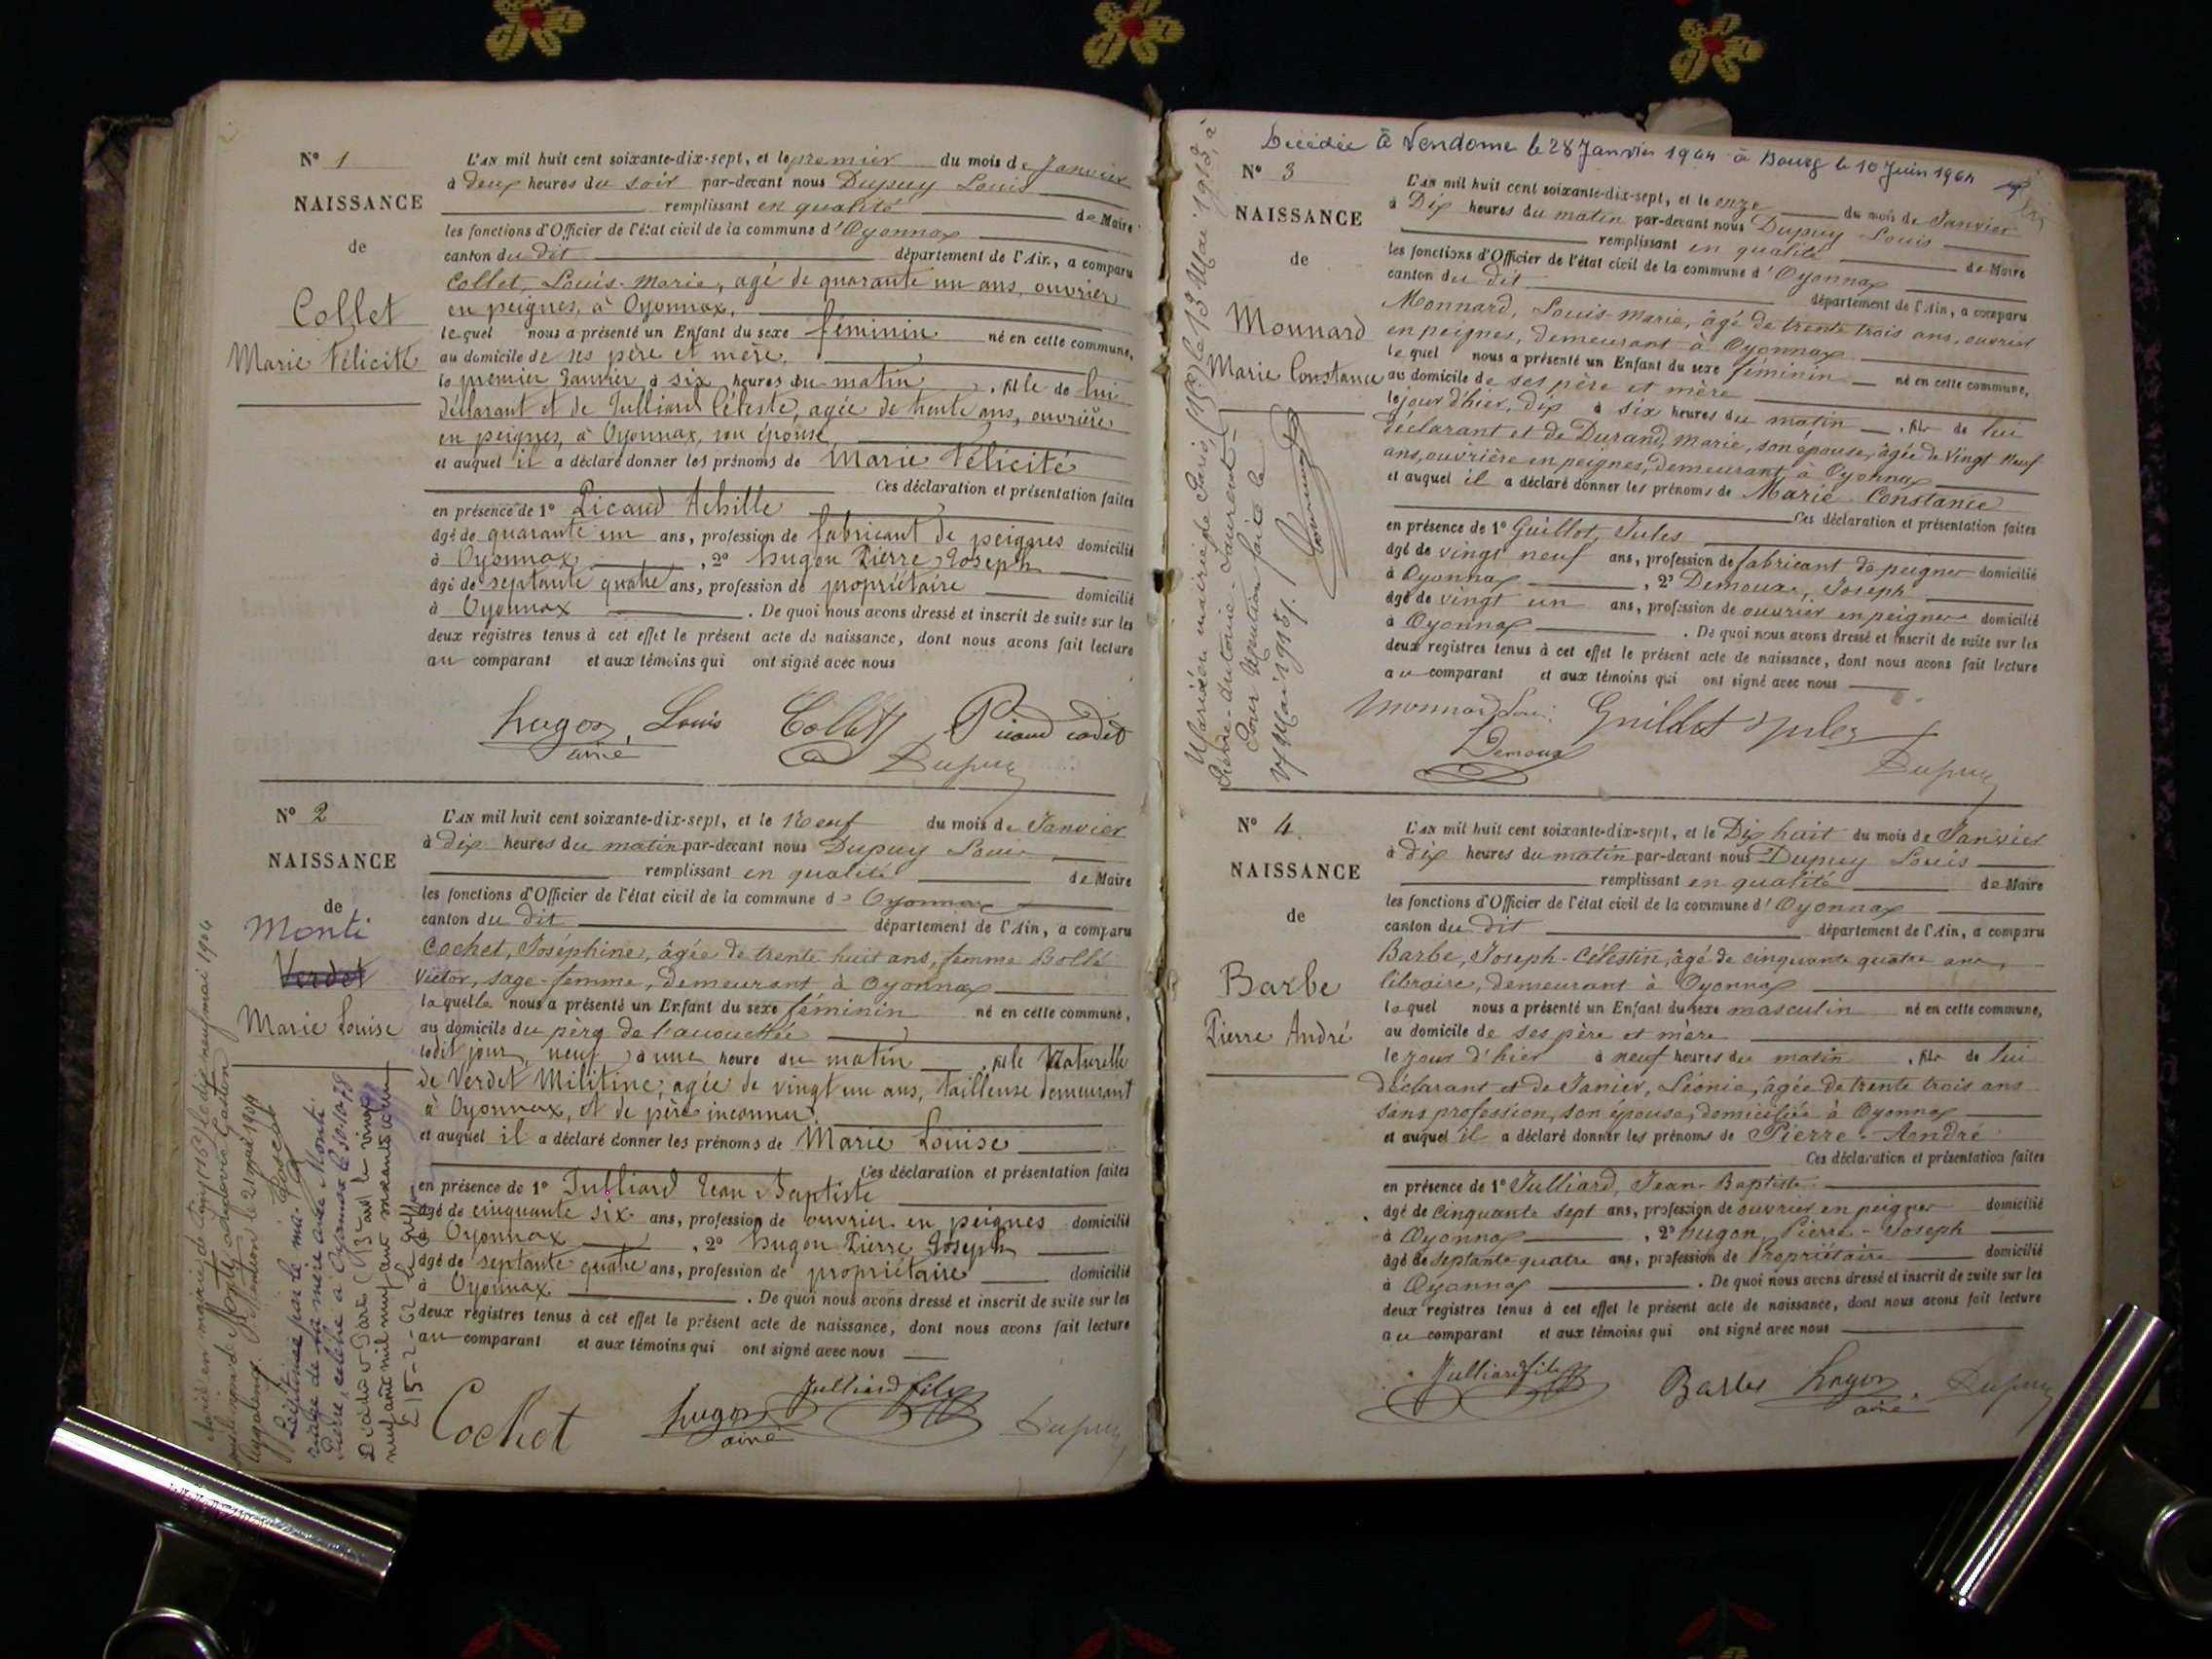 N° 1
NAISSANCE
de
Collet
Marie Félicité
L'AN mil huit cent soixante-dix-sept, et le premier du mois de Janvier
à deux heures du soir par-devant nous Dupuy Louis
remplissant en qualité de Maire
les fonctions d'Officier de l'état civil de la commune d'Oyonnax
canton du dit département de l'Ain, a comparu
Collet, Louis-Marie, agé de quarante un ans, ouvrier
en peignes, à Oyonnax,
lequel nous a présenté un Enfant du sexe féminin né en cette commune,
au domicile de ses père et mère,
le premier Janvier à six heures du matin, fille de lui
déclarant et de Julliard Céleste, agée de trente ans, ouvrière
en peignes, à Oyonnax, son épouse,
et auquel il a déclaré donner les prénoms de Marie Félicité
Ces déclaration et présentation faites
en présence de 1° Picaud Achille
âgé de quarante un ans, profession de fabricant de peignes domicilié
à Oyonnax, 2° Hugon Pierre Joseph
âgé de septante quatre ans, profession de propriétaire domicilié
à Oyonnax. De quoi nous avons dressé et inscrit de suite sur les
deux registres tenus à cet effet le présent acte de naissance, dont nous avons fait lecture
au comparant et aux témoins qui ont signé avec nous
hugon, Louis Collet Picaud cadet
ainé Dupuy
N° 2
NAISSANCE
de
Monti
Verdet
Marie Louise
L'AN mil huit cent soixante-dix-sept, et le Neuf du mois de Janvier
à dix heures du matin par-devant nous Dupuy Louis
remplissant en qualité de Maire
les fonctions d'Officier de l'état civil de la commune d'Oyonnax
canton du dit département de l'Ain, a comparu
Cochet, Joséphine, âgée de trente huit ans, femme Bollé
Victor, sage-femme, demeurant à Oyonnax
laquelle nous a présenté un Enfant du sexe féminin né en cette commune,
au domicile du père de l'accouchée
ledit jour, neuf, à une heure du matin, fille Naturelle
de Verdet Militine, agée de vingt un ans, tailleuse demeurant
à Oyonnax, et de père inconnu
et auquel il a déclaré donner les prénoms de Marie Louise
Ces déclaration et présentation faites
en présence de 1° Julliard Jean Baptiste
âgé de cinquante six ans, profession de ouvrier en peignes domicilié
à Oyonnax, 2° Hugon Pierre Joseph
âgé de septante quatre ans, profession de propriétaire domicilié
à Oyonnax. De quoi nous avons dressé et inscrit de suite sur les
deux registres tenus à cet effet le présent acte de naissance, dont nous avons fait lecture
au comparant et aux témoins qui ont signé avec nous
Cochet hugon Julliard fils Dupuy
ainé
le dix neuf mai 1904
Légitimée par le ma-
riage de sa mère avec Monti
Pierre, célébré à Oyonnax le 30-10-78
Décédée à Paris le vingt
neuf août mil neuf cent
Décédée à Vendome le 28 Janvier 1964 à Bourg le 10 Juin 1964
N° 3
NAISSANCE
de
Monnard
Marie Constance
Mariée en mairie de Paris le 13 Mai 1913, à
Pierre-Antoine-Laurent
Pour mention faite le
Mai 1913.
L'AN mil huit cent soixante-dix-sept, et le onze du mois de Janvier
à Dix heures du matin par-devant nous Dupuy Louis
remplissant en qualité de Maire
les fonctions d'Officier de l'état civil de la commune d'Oyonnax
canton du dit département de l'Ain, a comparu
Monnard, Louis-Marie, âgé de trente trois ans, ouvrier
en peignes, demeurant à Oyonnax
lequel nous a présenté un Enfant du sexe féminin né en cette commune,
au domicile de ses père et mère
le jour d'hier, dix à six heures du matin, fille de lui
déclarant et de Durand, Marie, son épouse, âgée de vingt neuf
ans, ouvrière en peignes, demeurant à Oyonnax
et auquel il a déclaré donner les prénoms de Marie Constance
Ces déclaration et présentation faites
en présence de 1° Guillot, Jules
âgé de vingt neuf ans, profession de fabricant de peignes domicilié
à Oyonnax, 2° Demoux, Joseph
âgé de vingt un ans, profession de ouvrier en peignes domicilié
à Oyonnax. De quoi nous avons dressé et inscrit de suite sur les
deux registres tenus à cet effet le présent acte de naissance, dont nous avons fait lecture
au comparant et aux témoins qui ont signé avec nous
Monnard Louis Guillot Jules
Demoux Dupuy
N° 4
NAISSANCE
de
Barbe
Pierre André
L'AN mil huit cent soixante-dix-sept, et le Dix huit du mois de Janvier
à dix heures du matin par-devant nous Dupuy Louis
remplissant en qualité de Maire
les fonctions d'Officier de l'état civil de la commune d'Oyonnax
canton du dit département de l'Ain, a comparu
Barbe, Joseph-Célestin, âgé de cinquante quatre ans,
libraire, demeurant à Oyonnax
lequel nous a présenté un Enfant du sexe masculin né en cette commune,
au domicile de ses père et mère
le jour d'hier à neuf heures du matin, fils de lui
déclarant et de Janier, Léonie, âgée de trente trois ans
sans profession, son épouse, domiciliée à Oyonnax
et auquel il a déclaré donner les prénoms de Pierre-André
Ces déclaration et présentation faites
en présence de 1° Julliard, Jean-Baptiste
âgé de cinquante sept ans, profession de ouvrier en peignes domicilié
à Oyonnax, 2° hugon, Pierre-Joseph
âgé de septante quatre ans, profession de Propriétaire domicilié
à Oyonnax. De quoi nous avons dressé et inscrit de suite sur les
deux registres tenus à cet effet le présent acte de naissance, dont nous avons fait lecture
au comparant et aux témoins qui ont signé avec nous
Julliard fils Barbe hugon Dupuy
ainé